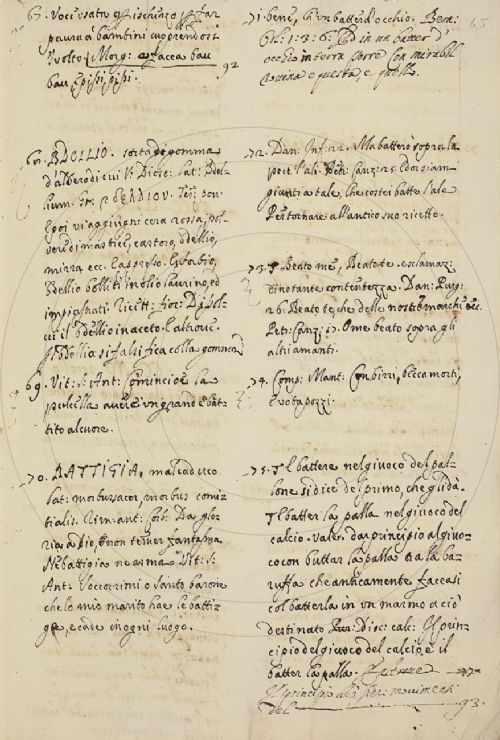 67. Voce usata
paura a bambini
volto: Morg: e facea bau
bau
92
68. BDELLIO. sorta di gomma
d'albero di cui V. Diosc: Lat: Bdel-
lium. Gr: βδέλλιον. Tes: pov:
E poi vi aggiugni cera rossa, pol-
vere di mastice, castoro, bdellio,
mirra ecc. E appresso. Euforbio,
bdellio bolliti in olio laurino, ed
impigliati. Ricett: fior:
il bdellio in aceto. E altrove.
Il bdellio si falsifica colla gomma
69. Vit: S: Ant: Cominciòe la
pulcella avere un grande
tito al cuore.
70. BATTIGIA, mal caduco
Lat: morbus sacer, morbus comi-
tialis. Rim: ant: Da glo-
ria a Dio, e non temer fantasma
Nè battigia ne arma. Vit: S:
Ant: Soccorrimi o santo barone
che lo mio marito hae le batti-
gie, e cade in ogni luogo.
71. bene, ch'un batter d'occhio. Bern:
Orl: 1: 3: 6: Ed in un batter d'
occhio in terra porre Con mirabil
rovina e questa, e quelle.
72. Dan: Inf: 22. Ma batterò sopra la
pece l'ali. Petr: canz: Ed or siam
giunti a tale, che costei batte l'ale
Per tornare all'antico suo ricetto.
73. Beato me, Beato te. esclamaz:
dinotante contentezza. Dan: Purg:
26. Beato te, che delle nostre marche ecc.
Petr: Canz: O me beato sopra gli
altri amanti.
74. Comp: Mant: Con birri, beccamorti,
e votapozzi.
75. Il battere nel giuoco del pal-
lone si dice del primo, che gli dà.
Il batter la palla nel giuoco del
calcio, vale, dar principio al giuo-
co con buttar la palla alla ba-
ruffa che anticamente faceasi
col batterla in un marmo a ciò
destinato Disc: calc: Il prin-
cipio del giuoco del calcio, è il
batter la palla.
Il principio de movimenti
del
93.